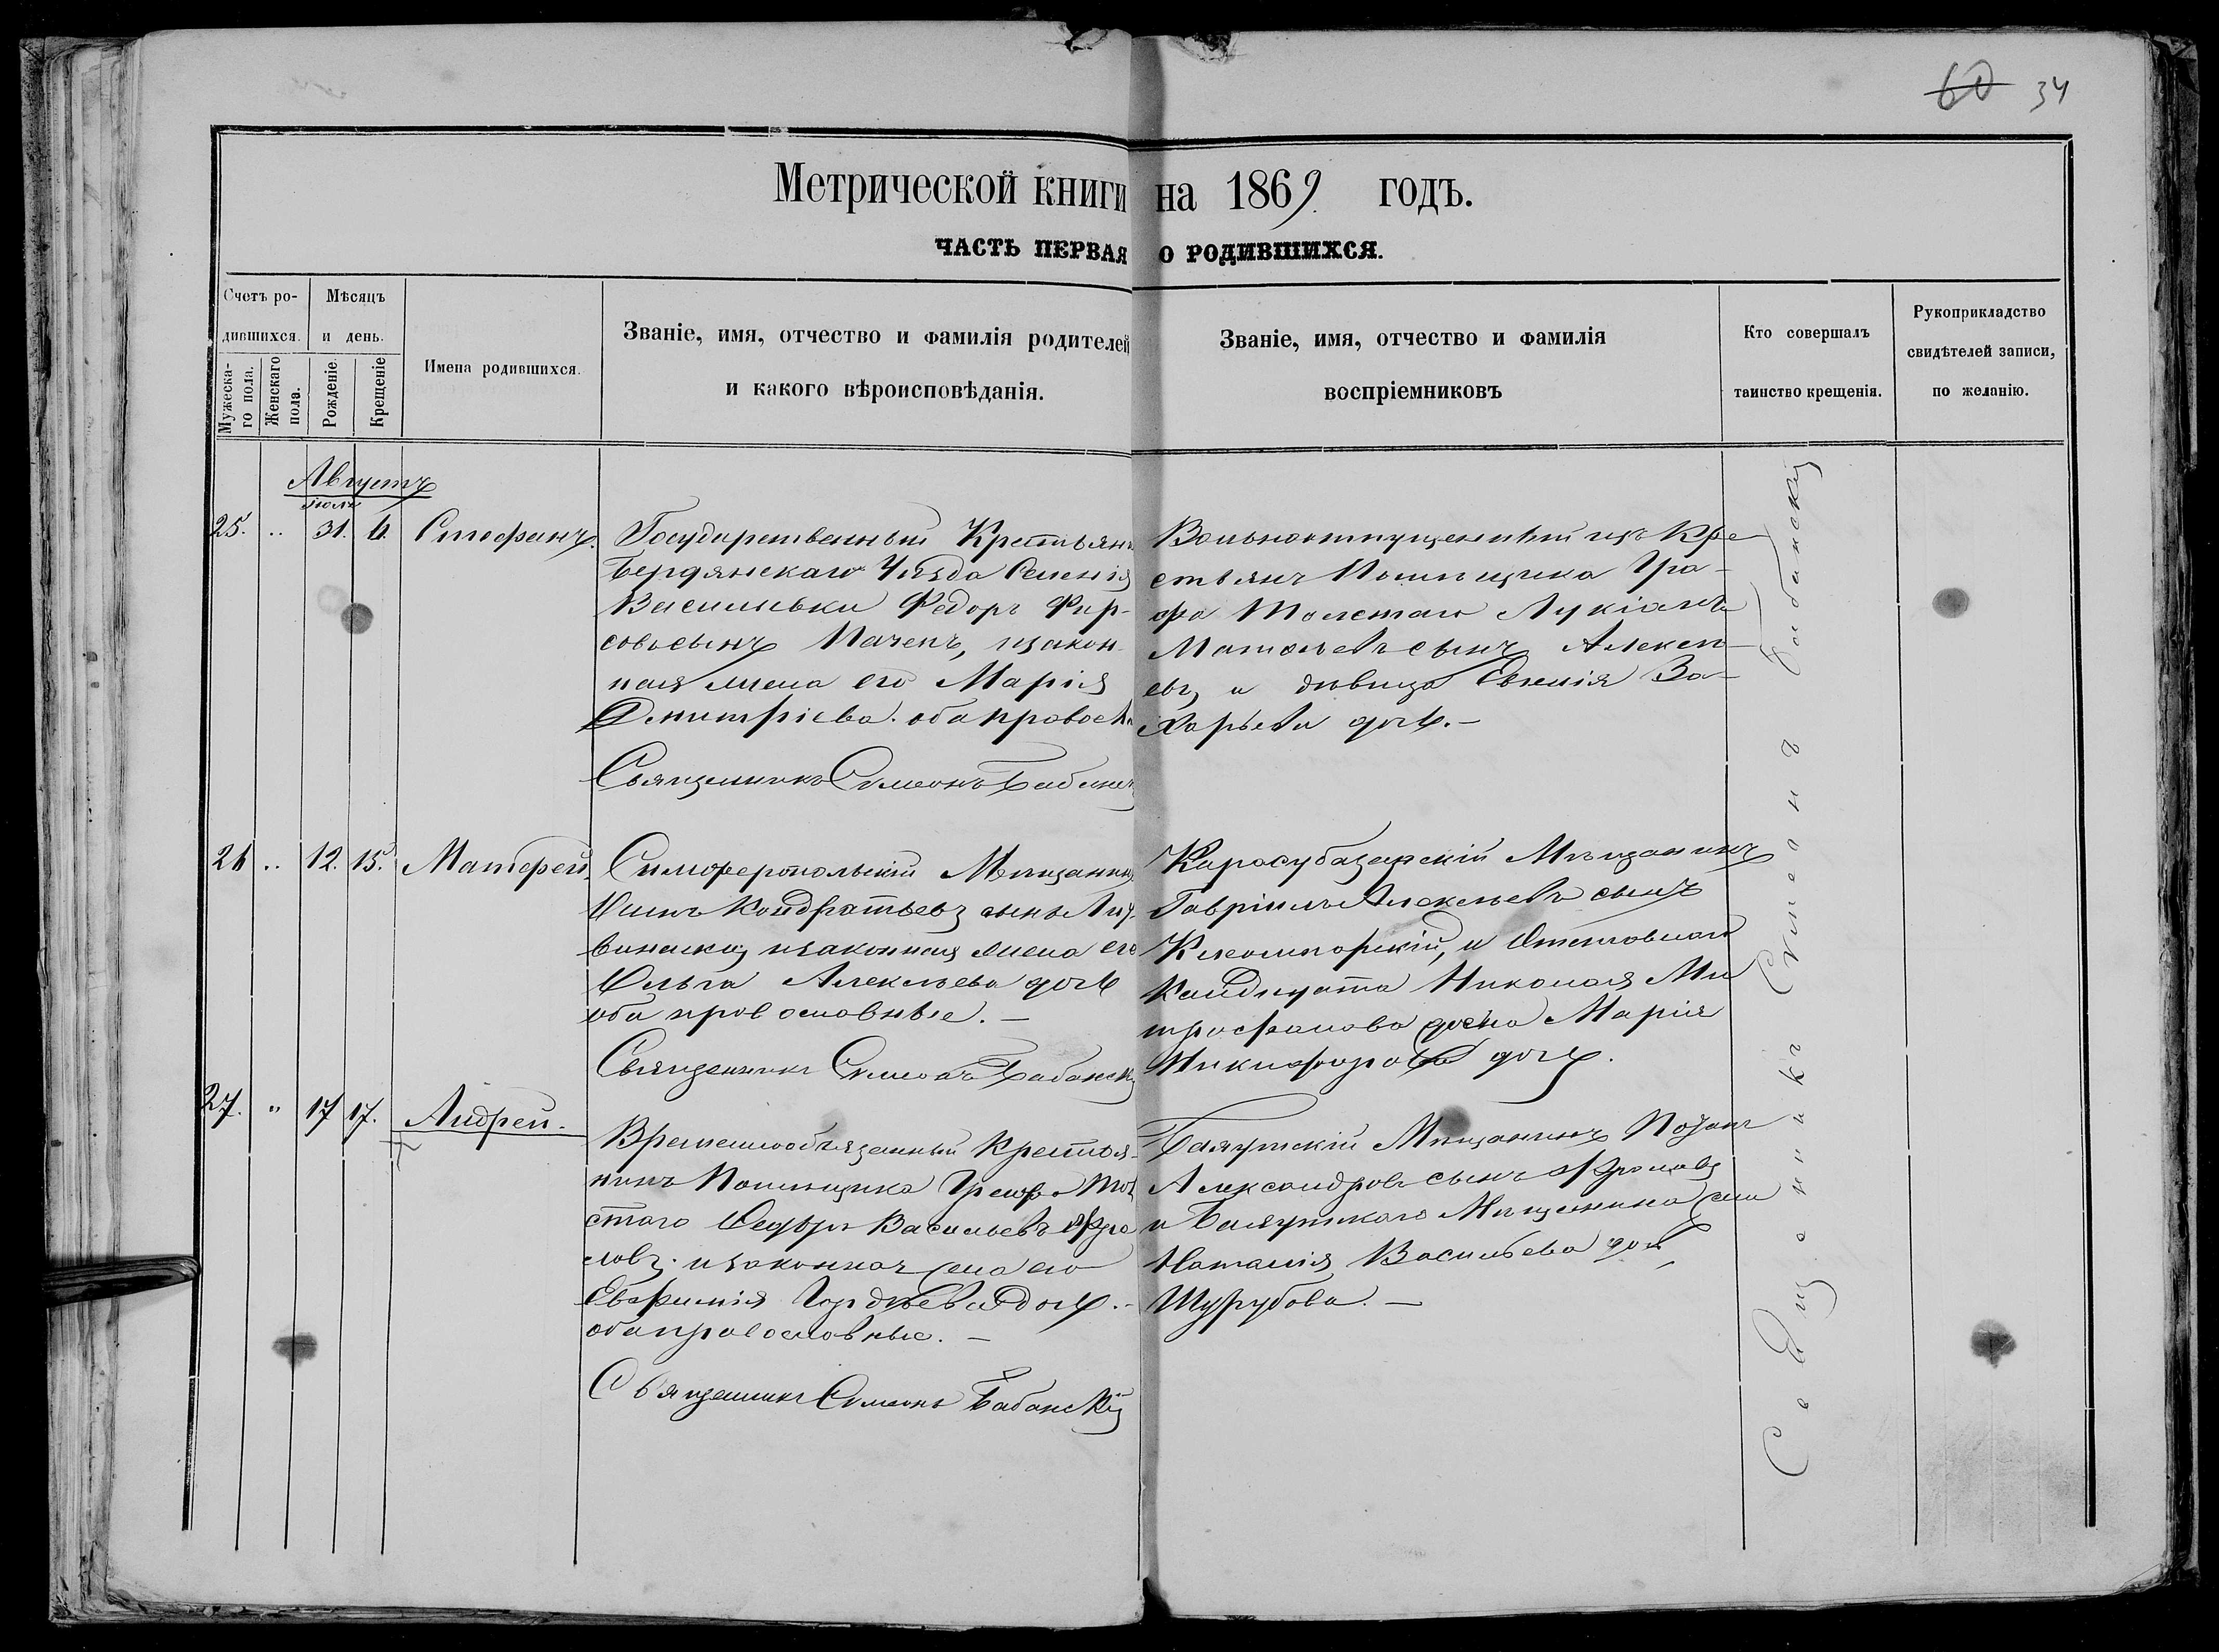 60 34
Метрической книги на 1869 годъ.
ЧАСТЬ ПЕРВАЯ О РОДИВШИХСЯ.
Счетъ ро-
дившихся.
Мужеска-
го пола.
Женскаго
пола.
Мѣсяцъ
и день.
Рожденіе
Крещеніе
Имена родившихся.
Званіе, имя, отчество и фамилія родителей
и какого вѣроисповѣданія.
Званіе, имя, отчество и фамилія
воспріемниковъ
Кто совершалъ
таинство крещенія.
Рукоприкладство
свидѣтелей записи,
по желанію.
Августъ
Іюль
25. .. 31. 6. Стефанъ.
Государственный Крестьян
Бердянскаго Уѣзда Селенія
Васильевки Федоръ Фир-
совъ сынъ изакон
ная жена его Марія
Дмитріева. оба правосл
Священникъ Симеонъ Бабанск
Вольноотпущенный изъ Кре
стьянъ Помѣщика Гра-
фа Толстаго Лукіанъ
Матвѣевъ сынъ Алексѣ
евъ и дѣвица Евгенія За-
харьева дочь.-
26 .. 12. 15. Матфей.
Симферопольскій Мѣщанинъ
Кондратьевъ сынъ
изаконная жена его
Ольга Алексѣева дочь
оба православные.-
Священникъ Симеонъ Бабанскій
Карасубазарскій Мѣщанинъ
Гавріилъ Алексѣевъ сынъ
и
Кандидата Николая Ми
трофанова жена Марія
Никифорова дочь.
27. " 17 17. Андрей.
Временнообязанный Крестья-
нинъ Помѣщика Графа Тол
стаго Ѳедоръ Васильевъ Фро
ловъ. изаконная жена его
Евфимія Гордѣева дочь.-
оба православные.-
Священникъ Симеонъ Бабанскій
Мѣщанинъ
Александровъ сынъ Фроловъ
и Мѣщанина жена
Наталія Васильева дочь,
Шурубова.-
Священникъ Симеонъ Бабанскій